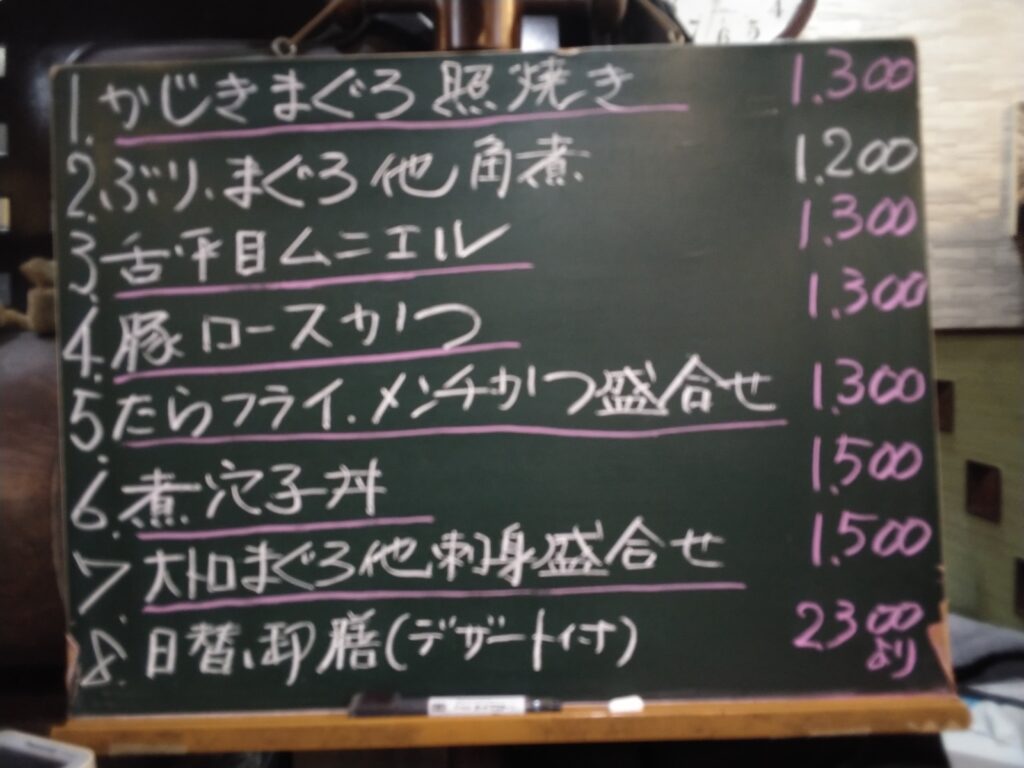 1. かじきまぐろ 照焼き 1.300
2. ぶり、まぐろ他 角煮 1.200
3. 舌平目ムニエル 1.300
4. 豚ロースかつ 1.300
5. たらフライ.メンチかつ盛合せ 1.300
6. 煮穴子丼 1.500
7. 大トロまぐろ他刺身盛合せ 1.500
8. 日替り御膳(デザート付) 2300より